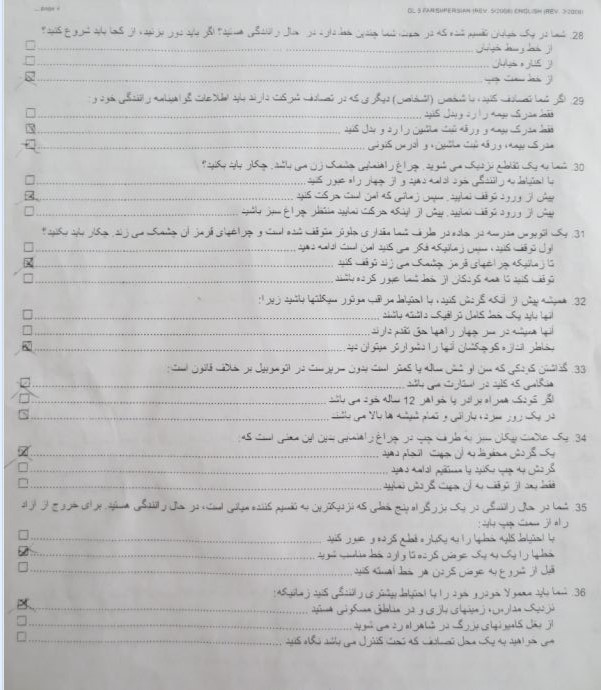 DL 5 FARSI/PERSIAN (REV. 5/2008) ENGLISH (REV. 2/2008)
28. شما در یک خیابان تقسیم شده که در جهت شما چندین خط دارد، در حال رانندگی هستید؟ اگر باید دور بزنید، از کجا باید شروع کنید؟
از خط وسط خیابان
از کناره خیابان
از خط سمت چپ
29. اگر شما تصادف کنید، با شخص (اشخاص) دیگری که در تصادف شرکت دارند باید اطلاعات گواهینامه رانندگی خود و:
فقط مدرک بیمه را رد وبدل کنید
فقط مدرک بیمه و ورقه ثبت ماشین را رد و بدل کنید
مدرک بیمه، ورقه ثبت ماشین، و آدرس کنونی
30. شما به یک تقاطع نزدیک می شوید. چراغ راهنمایی چشمک زن می باشد. چکار باید بکنید؟
با احتیاط به رانندگی خود ادامه دهید و از چهار راه عبور کنید
پیش از ورود توقف نمایید. سپس زمانی که امن است حرکت کنید
پیش از ورود توقف نمایید. پیش از اینکه حرکت نمایید منتظر چراغ سبز باشید
31. یک اتوبوس مدرسه در جاده در طرف شما مقداری جلوتر متوقف شده است و چراغهای قرمز آن چشمک می زند. چکار باید بکنید؟
اول توقف کنید، سپس زمانیکه فکر می کنید امن است ادامه دهید
تا زمانیکه چراغهای قرمز چشمک می زند توقف کنید
توقف کنید تا همه کودکان از خط شما عبور کرده باشند
32. همیشه پیش از آنکه گردش کنید، با احتیاط مراقب موتور سیکلتها باشید زیرا:
آنها باید یک خط کامل ترافیک داشته باشند
آنها همیشه در سر چهار راهها حق تقدم دارند
بخاطر اندازه کوچکشان آنها را دشوارتر میتوان دید
33. گذاشتن کودکی که سن او شش ساله یا کمتر است بدون سرپرست در اتوموبیل بر خلاف قانون است:
هنگامی که کلید در استارت می باشد
اگر کودک همراه برادر یا خواهر 12 ساله خود می باشد
در یک روز سرد، بارانی و تمام شیشه ها بالا می باشند
34. یک علامت پیکان سبز به طرف چپ در چراغ راهنمایی بدین این معنی است که:
یک گردش محفوظ به آن جهت انجام دهید
گردش به چپ بکنید یا مستقیم ادامه دهید
فقط بعد از توقف به آن جهت گردش نمایید
35. شما در حال رانندگی در یک بزرگراه پنج خطی که نزدیکترین به تقسیم کننده میانی است، در حال رانندگی هستید. برای خروج از آزاد
راه از سمت چپ باید:
با احتیاط کلیه خطها را به یکباره قطع کرده و عبور کنید
خطها را یک به یک عوض کرده تا وارد خط مناسب شوید
قبل از شروع به عوض کردن هر خط آهسته کنید
36. شما باید معمولا خودرو خود را با احتیاط بیشتری رانندگی کنید زمانیکه:
نزدیک مدارس، زمینهای بازی و در مناطق مسکونی هستید
از بغل کامیونهای بزرگ در شاهراه رد می شوید
می خواهید به یک محل تصادف که تحت کنترل می باشد نگاه کنید